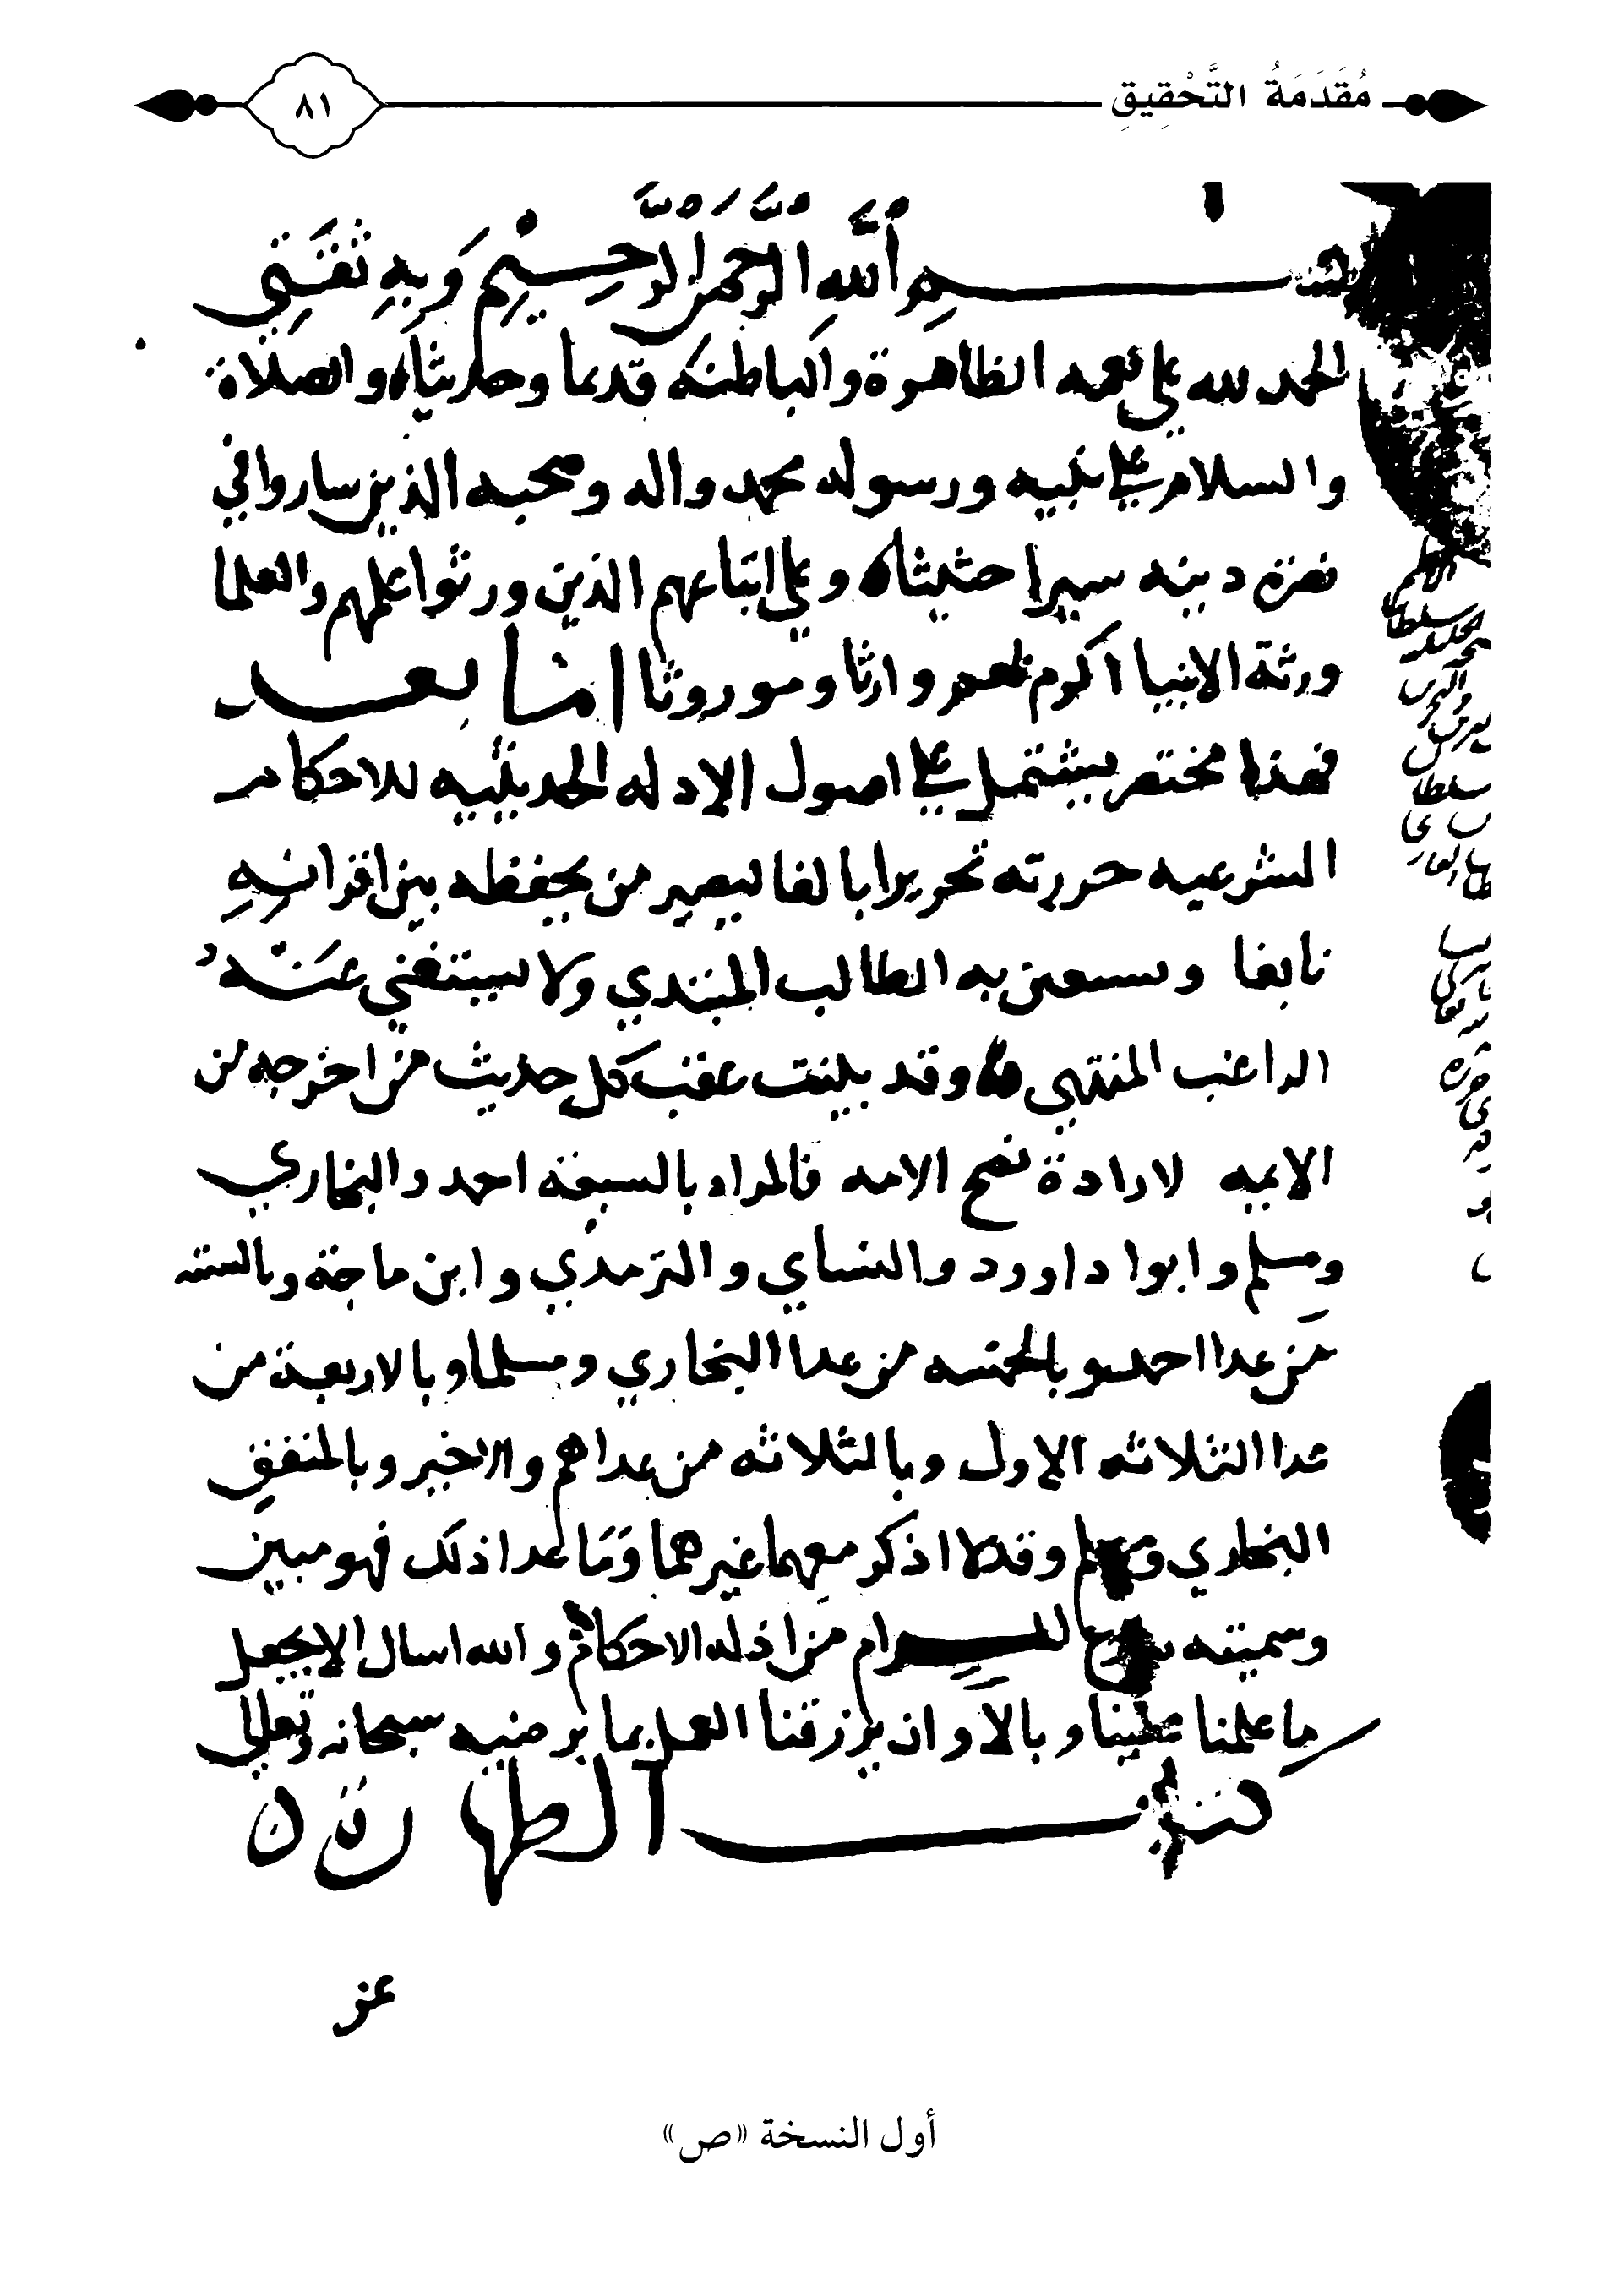 مُقَدِّمَةُ التَّحْقِيقِ
٨١
بسم اللَّهِ الرَّحْمَنِ الرَّحِيْمِ وَبِهِ ثِقَتِي
الحمد لله على نعمه الظاهرة والباطنه قديما وحديثا والصلاة
والسلام على نبيه ورسوله محمد واله وصحبه الذين ساروا في
نصرة دينه سيرا حثيثا وعلى اتباعهم الذين ورثوا علمهم والعلما
ورثة الانبيا اكرم بهم وارثا وموروثا اما بعد
فهذا مختصر يشتمل على اصول الادله الحديثيه للاحكام
الشرعيه حررته تحريرا بالغا ليصير من يحفظه بين اقرانه
نابغا ويستعين به الطالب المبتدي ولا يستغني عنه
الراغب المنتهي وقد بينت عقب كل حديث من اخرجه من
الايمه لارادة نصح الامه فالمراد بالسبعة احمد والبخاري
ومسلم وابوا داورد والنساي والترمذي وابن ماجة وبالسته
من عدا احمد وبالخمسه من عدا البخاري ومسلما وبالاربعة من
عدا الثلاثه الاول وبالثلاثه من عداهم والاخير وبالمتفق
البخاري ومسلم وقد لا اذكر معهما غيرهما وَمَا عدا ذلك فهو مبين
وسميته بلوغ المرام من ادله الاحكام والله اسال الا يجعل
ما علمنا علينا وبالا وان يرزقنا العمل بما يرضيه سبحانه وتعالى
كتاب الطهارة
عز
أول النسخة «ص»